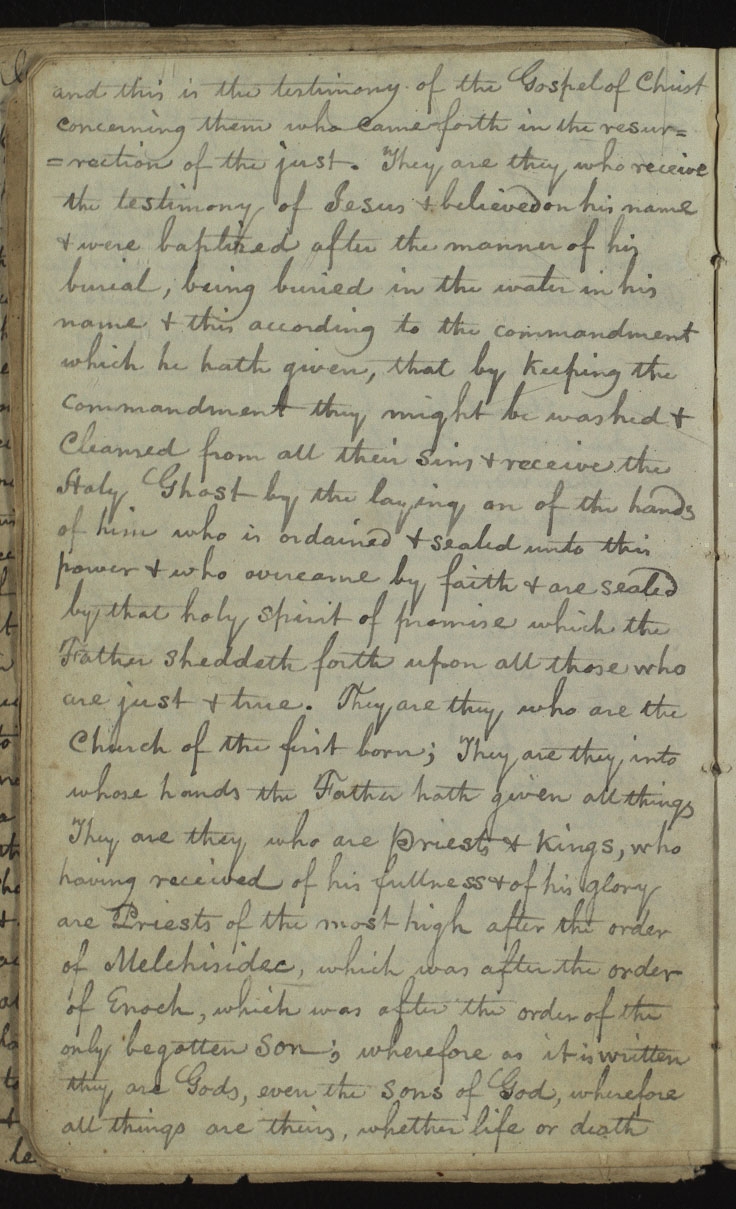 and this is the testimony of the Gospel of Christ
concerning them who came forth in the resur=
=rection of the just. They are they who receive
the testimony of Jesus & believed on his name
& were baptized after the manner of his
burial, being buried in the water in his
name & this according to the commandment
which he hath given, that by keeping the
commandment they might be washed &
Cleansed from all their sins & receive the
Holy Ghost by the laying on of the hands
of him who is ordained & sealed unto this
power & who overcame by faith & are sealed
by that holy spirit of promise which the
Father sheddeth forth upon all those who
are just & true. They are they who are the
Church of the first born; They are they into
whose hands the Father hath given all things
They are they who are Priests & Kings, who
having received of his fullness & of his glory
are Priests of the most high after the order
of Melchisidec, which was after the order
of Enoch, which was after the order of the
only begotten Son; wherefore as it is written
they are Gods, even the sons of God, wherefore
all things are theirs, whether life or death